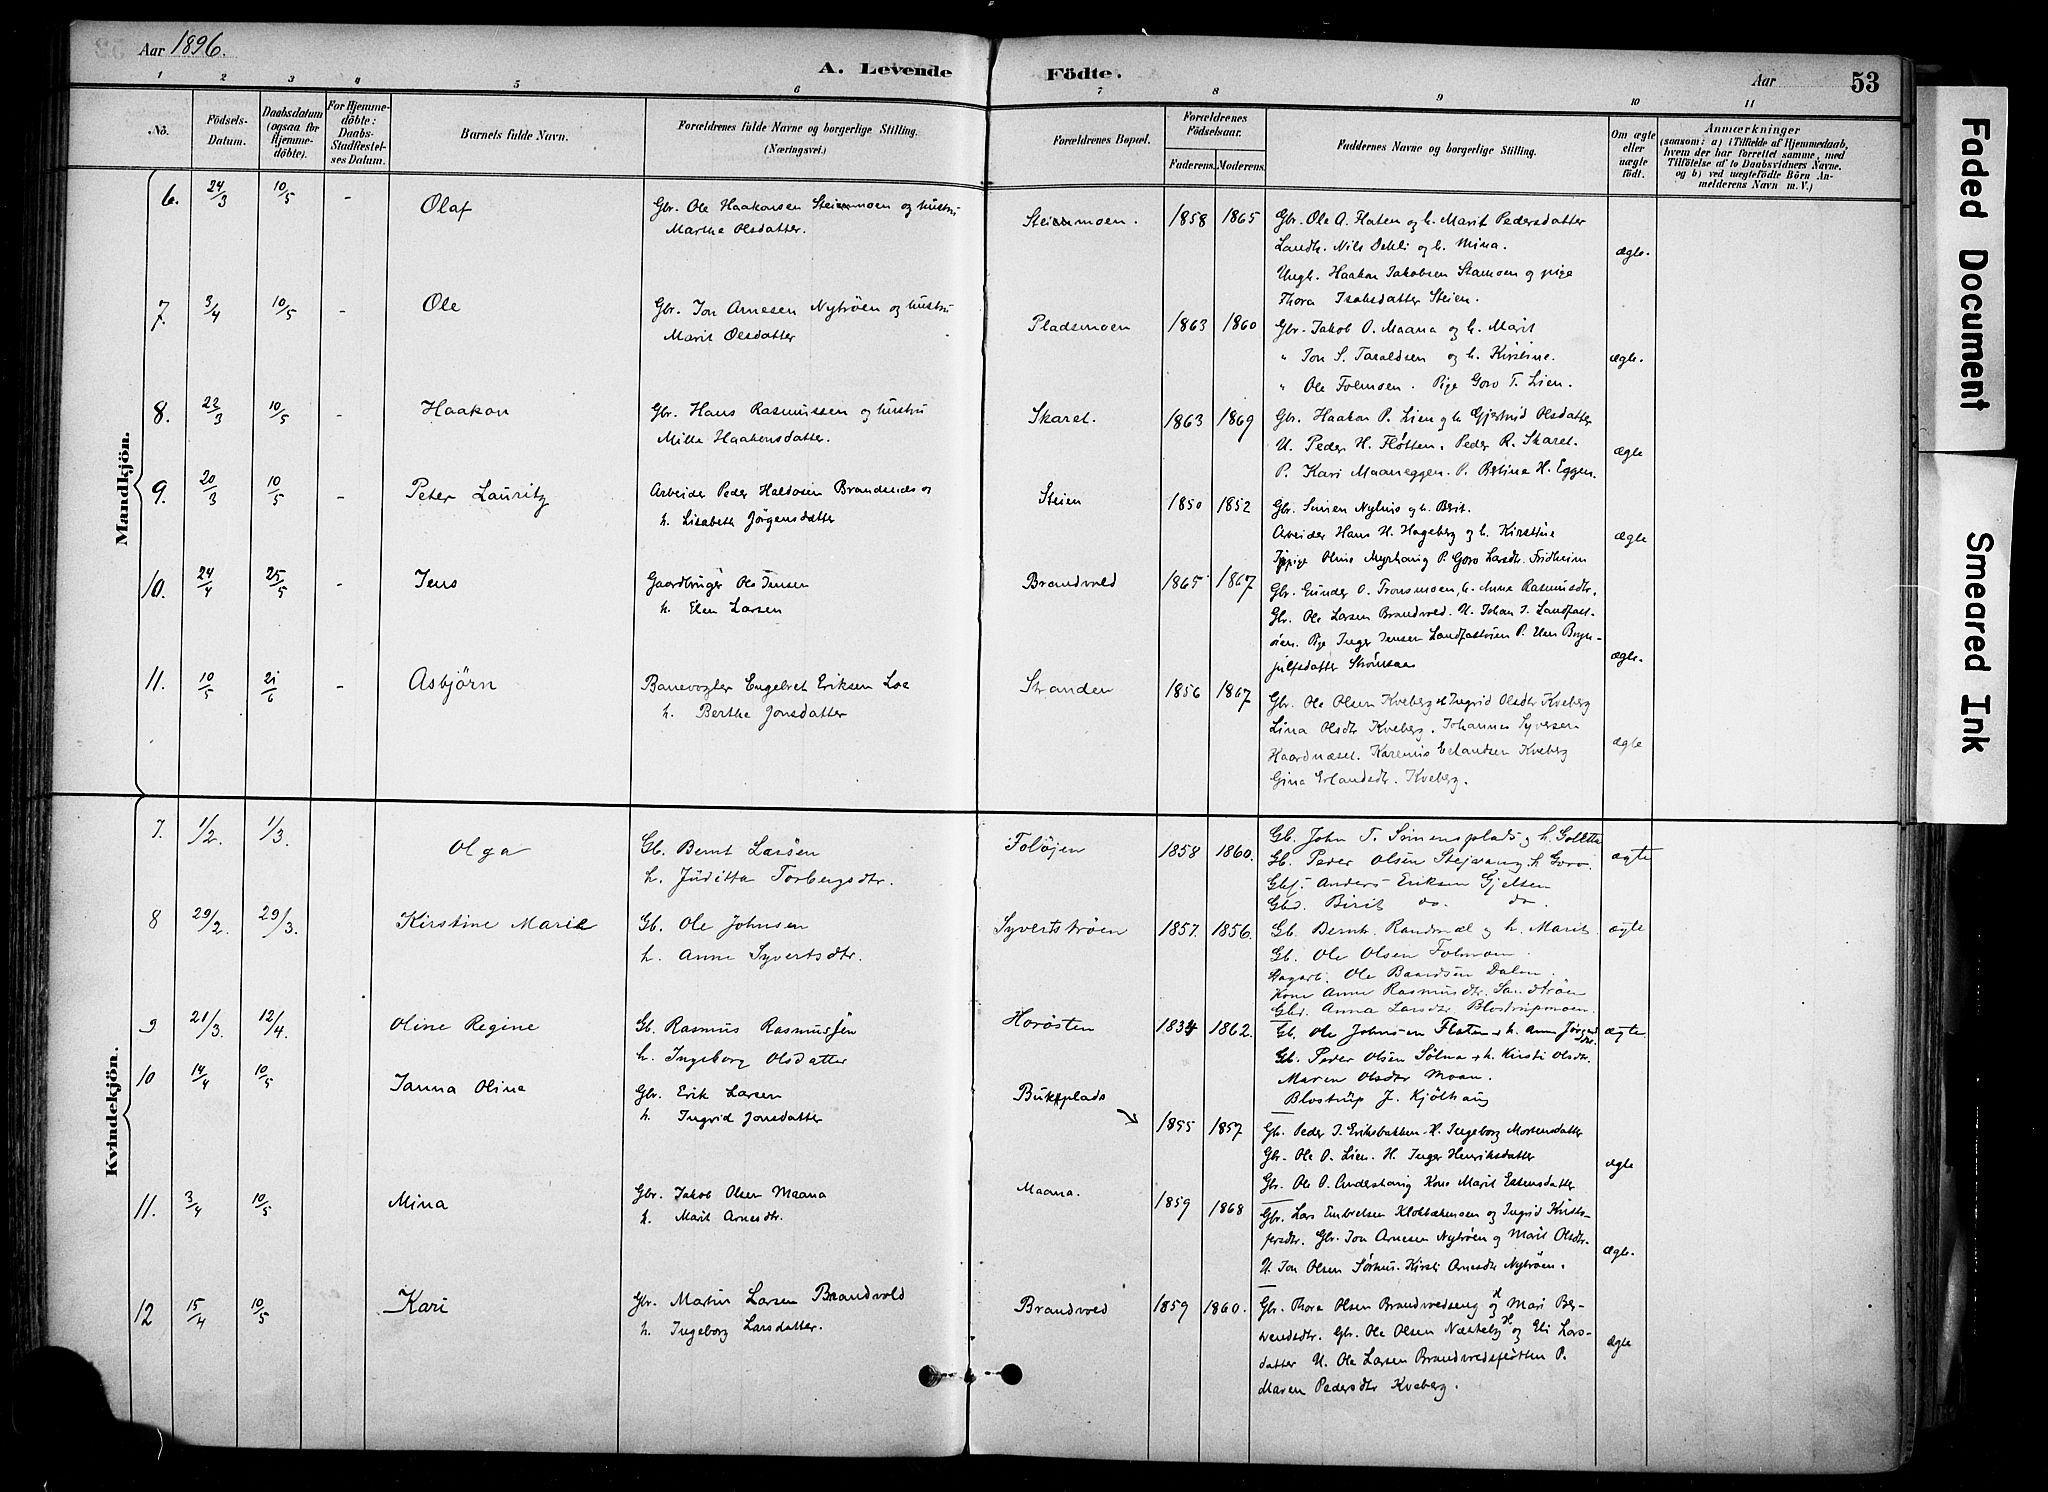 Aar 1896.
A. Levende Födte.
Aar 53
1 2 3 4 5 6 7 8 9 10 11
No.
Födsels-Datum.
Daabsdatum (ogsaa for Hjemmedöbte).
For Hjemmedöbte: Daabs-Stadfestelses Datum.
Barnets fulde Navn.
Forældrenes fulde Navne og borgerlige Stilling. (Næringsvei.)
Forældrenes Bopæl.
Forældrenes Födselsaar.
Faderens. Moderens.
Faddernes Navne og borgerlige Stilling.
Om ægte eller uægte födt.
Anmærkninger
(saasom: a) i Tilfælde af Hjemmedaab,
hvem der har forrettet samme, med
Tilföielse af to Daabsvidners Navne,
og b) ved uægtefödte Börn An-
melderens Navn m. V.)
Mandkjön.
6. 24/3 10/5 - Olaf Gbr. Ole Haakonsen Steienmoen og hustru Steienmoen. 1858 1865 Gbr. Ole A. Haten og h. Marit Pedersdatter
Marthe Olsdatter. Landh. Nils Dehli og h. Mina. ægte.
Ungk. Haakon Jakobsen Stamoen og pige
Thora Isaksdatter Steien.
7. 3/4 10/5 - Ole Gbr. Jon Arnesen Nytröen og hustru Pladsmoen 1863 1860 Gbr. Jakob O. Maana og h. Marit
Marit Olsdatter " Jon S. Taraldsen og h. Kirstine. ægte.
" Ole Folmoen. Pige Goro T. Lien.
8. 22/3 10/5 - Haakon Gbr. Hans Rasmussen og hustru Skaret. 1863 1869 Gbr. Haakon P. Lien og h. Gjertrud Olsdatter
Mille Haakensdatter. U. Peder H. Fløtten. Peder R. Skaret. ægte
P. Kari Maaneggen. P. Betine H. Eggen.
9. 20/3 10/5 - Peter Lauritz Arbeider Peder Haldosen Brandsnes og Steien 1850 1852 Gbr. Simen Nyhus og h. Berit.
h. Lisabeth Jörgensdatter Arbeider Hans H. Hageberg og h. Kirstine ægte
pige Oline Myrhaug P. Goro Larsdtr. Fridheim
10. 24/4 25/5 - Jens Gaardbruger Ole Jensen Brandvold 1865 1867 Gbr. Gunder O. Tronsmoen, h. Anne Rasmusdtr.
h. Elen Larsen Gbr. Ole Larsen Brandvold. U. Johan J. Landfast-
öien. Pige Inger Jensen Landfastöien P. Elen Bryn-
julfsdatter Strømsaa ægte.
11. 10/5 21/6 - Asbjörn Banevogter Engelbret Eriksen Loe Stranden 1856 1867 Gbr. Ole Olsen Kveberg og Ingrid Olsdtr Kveberg
h. Berthe Jonsdatter Lina Olsdtr Kveberg. Johannes Syversen
Haardnæset. Karenus Erlandsen Kveberg ægte
Gina Erlandsdtr. Kveberg.
Kvindekjön.
7. 1/2. 1/3. Olga Gb. Bernt Larsen Foløjen 1858 1860. Gb. John T. Simensplads og h. Golletta
h. Juditta Torbergsdtr. Gb. Peder Olsen Stejvang, h. Goro ægte
Gbf. Anders Eriksen Gjelsen
Gbd. Birit do. do.
8 29/2. 29/3. Kirstine Marie Gb. Ole Johnsen Syvertströen 1857. 1856. Gb. Bernh. Randmæl og h. Marit ægte
h. Anne Syvertsdtr. Gb. Ole Olsen Folmoen.
Dagarb. Ole Baardsen Dalen.
Kone Anne Rasmusdtr. Sandtröen
Gbd. Anna Larsdtr. Blostrupmoen.
9 21/3. 12/4. Oline Regine Gb. Rasmus Rasmussen Horøsten 1834 1862. Gb. Ole Johnsen Floten & h. Anne Jörgensdtr. ægte.
h. Ingeborg Olsdatter Gb. Peder Olsen Sölna & h. Kirsti Olsdtr.
Maren Olsdtr Moan.
Blostrup J. Kjölhaug
10 14/4 10/5 Janna Olina Gbr. Erik Larsen Bukkplads 1855 1857 Gb. Peder J. Eriksbakken. H. Ingeborg Mortensdatter
h. Ingrid Jonsdatter Gbr. Ole O. Lien. H. Inger Henriksdatter ægte
Gbr. Ole O. Andershaug Kone Marit Estensdatter
11. 3/4 10/5 Mina Gbr. Jakob Olsen Maana Maana. 1859 1868 Gbr. Lars Embretsen Klokkermoen og Ingrid Kristo-
h. Marit Arnesdtr. fersdtr. Gbr. Jon Arnesen Nytröen og Marit Olsdtr. ægte.
U. Jon Olsen Sørhus. Kirsti Arnesdtr Nytröen.
12 15/4 10/5 Kari Gbr. Martin Larsen Brandvold Brandvold 1859 1860. Gbr. Thora Olsen Brandvoldseng og H Mari Ber-
h. Ingeborg Larsdatter. wendsdtr. Gbr. Ole Olsen Næsteby og H Eli Lars-
datter U. Ole Larsen Brandvoldsfløtten P. ægte
Maren Pedersdtr Kveberg.
Faded Document
Smeared Ink